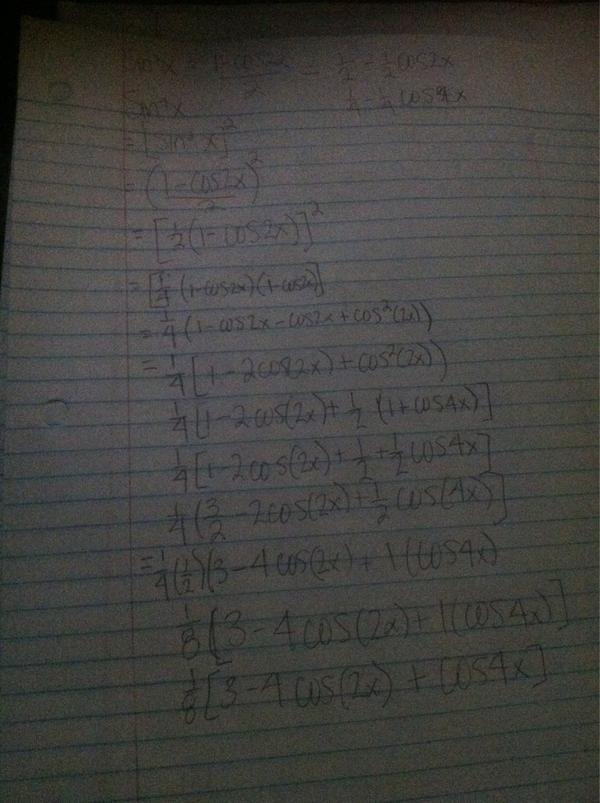 Sin²x = 1-cos2x/2 = 1/2 - 1/2 cos2x
Sin⁴x 1/4 - 1/4 cos4x
= [sin²x]²
= (1-cos2x/2)²
= [1/2(1-cos2x)]²
= [1/4 (1-cos2x)(1-cos2x]
= 1/4 (1-cos2x-cos2x+cos²(2x))
= 1/4 [1-2cos2x)+cos²(2x))
1/4 [1-2cos(2x)+1/2 (1+cos4x)]
1/4 [1-2cos(2x)+1/2+1/2cos4x]
1/4 (3/2 -2cos(2x)+1/2 cos(4x)]
= 1/4 (1/2)(3-4cos(2x)+1(cos4x)
1/8 [3-4cos(2x)+1(cos4x)]
1/8 [3-4cos(2x)+cos4x]